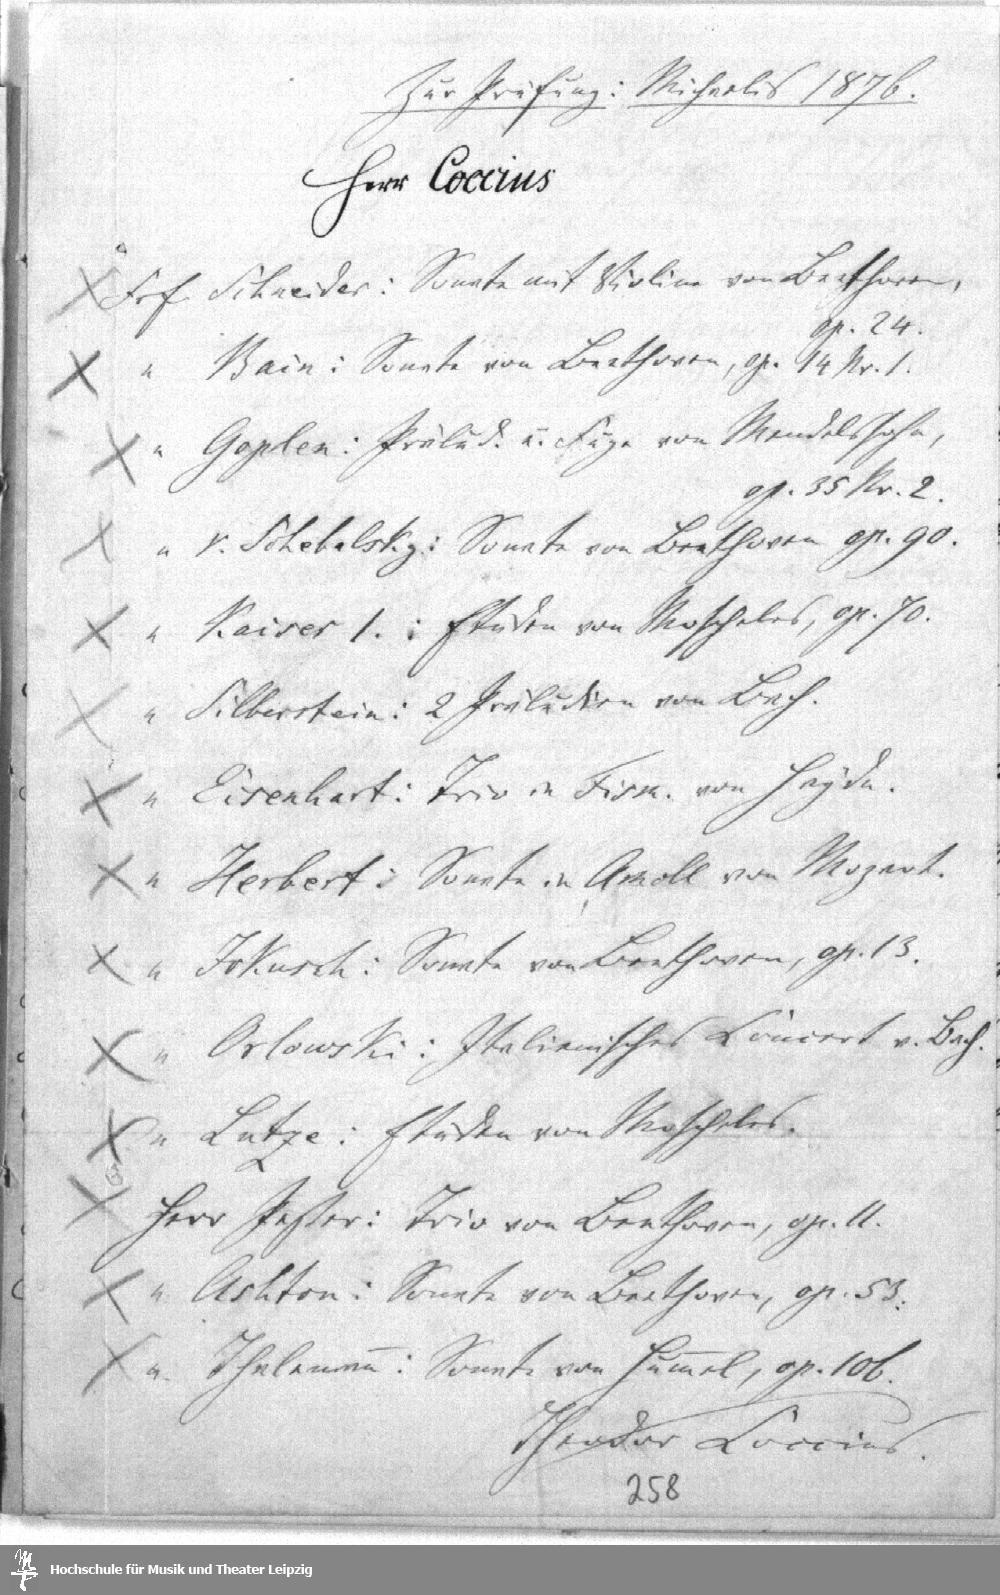 Zur Prüfung: Michaelis 1876.
Herr Coccius
Frl. Schneider: Sonate mit Violine von Beethoven,
op. 24.
" Bain: Sonate von Beethoven, op. 14 Nr. 1.
" Goplen: Prälud. u. Fuge von Mendelssohn,
op. 35 Nr. 2.
" v. Schebalsky: Sonate von Beethoven op. 90.
" Kaiser 1. : Etüden von Moscheles, op. 70.
" Silberstein: 2 Präludien von Bach.
" Eisenhart: Trio in Fism. von Haydn.
" Herbert: Sonate in Amoll von Mozart.
" Jokusch: Sonate von Beethoven, op. 13.
" Orlowski: Italienisches Concert v. Bach.
" Lutze: Etüden von Moscheles.
Herr Pester: Trio von Beethoven, op. 11.
" Ashton: Sonate von Beethoven, op. 53.
" Thelemañ: Sonate von Hum̄el, op. 106.
Theodor Coccius.
258
Hochschule für Musik und Theater Leipzig